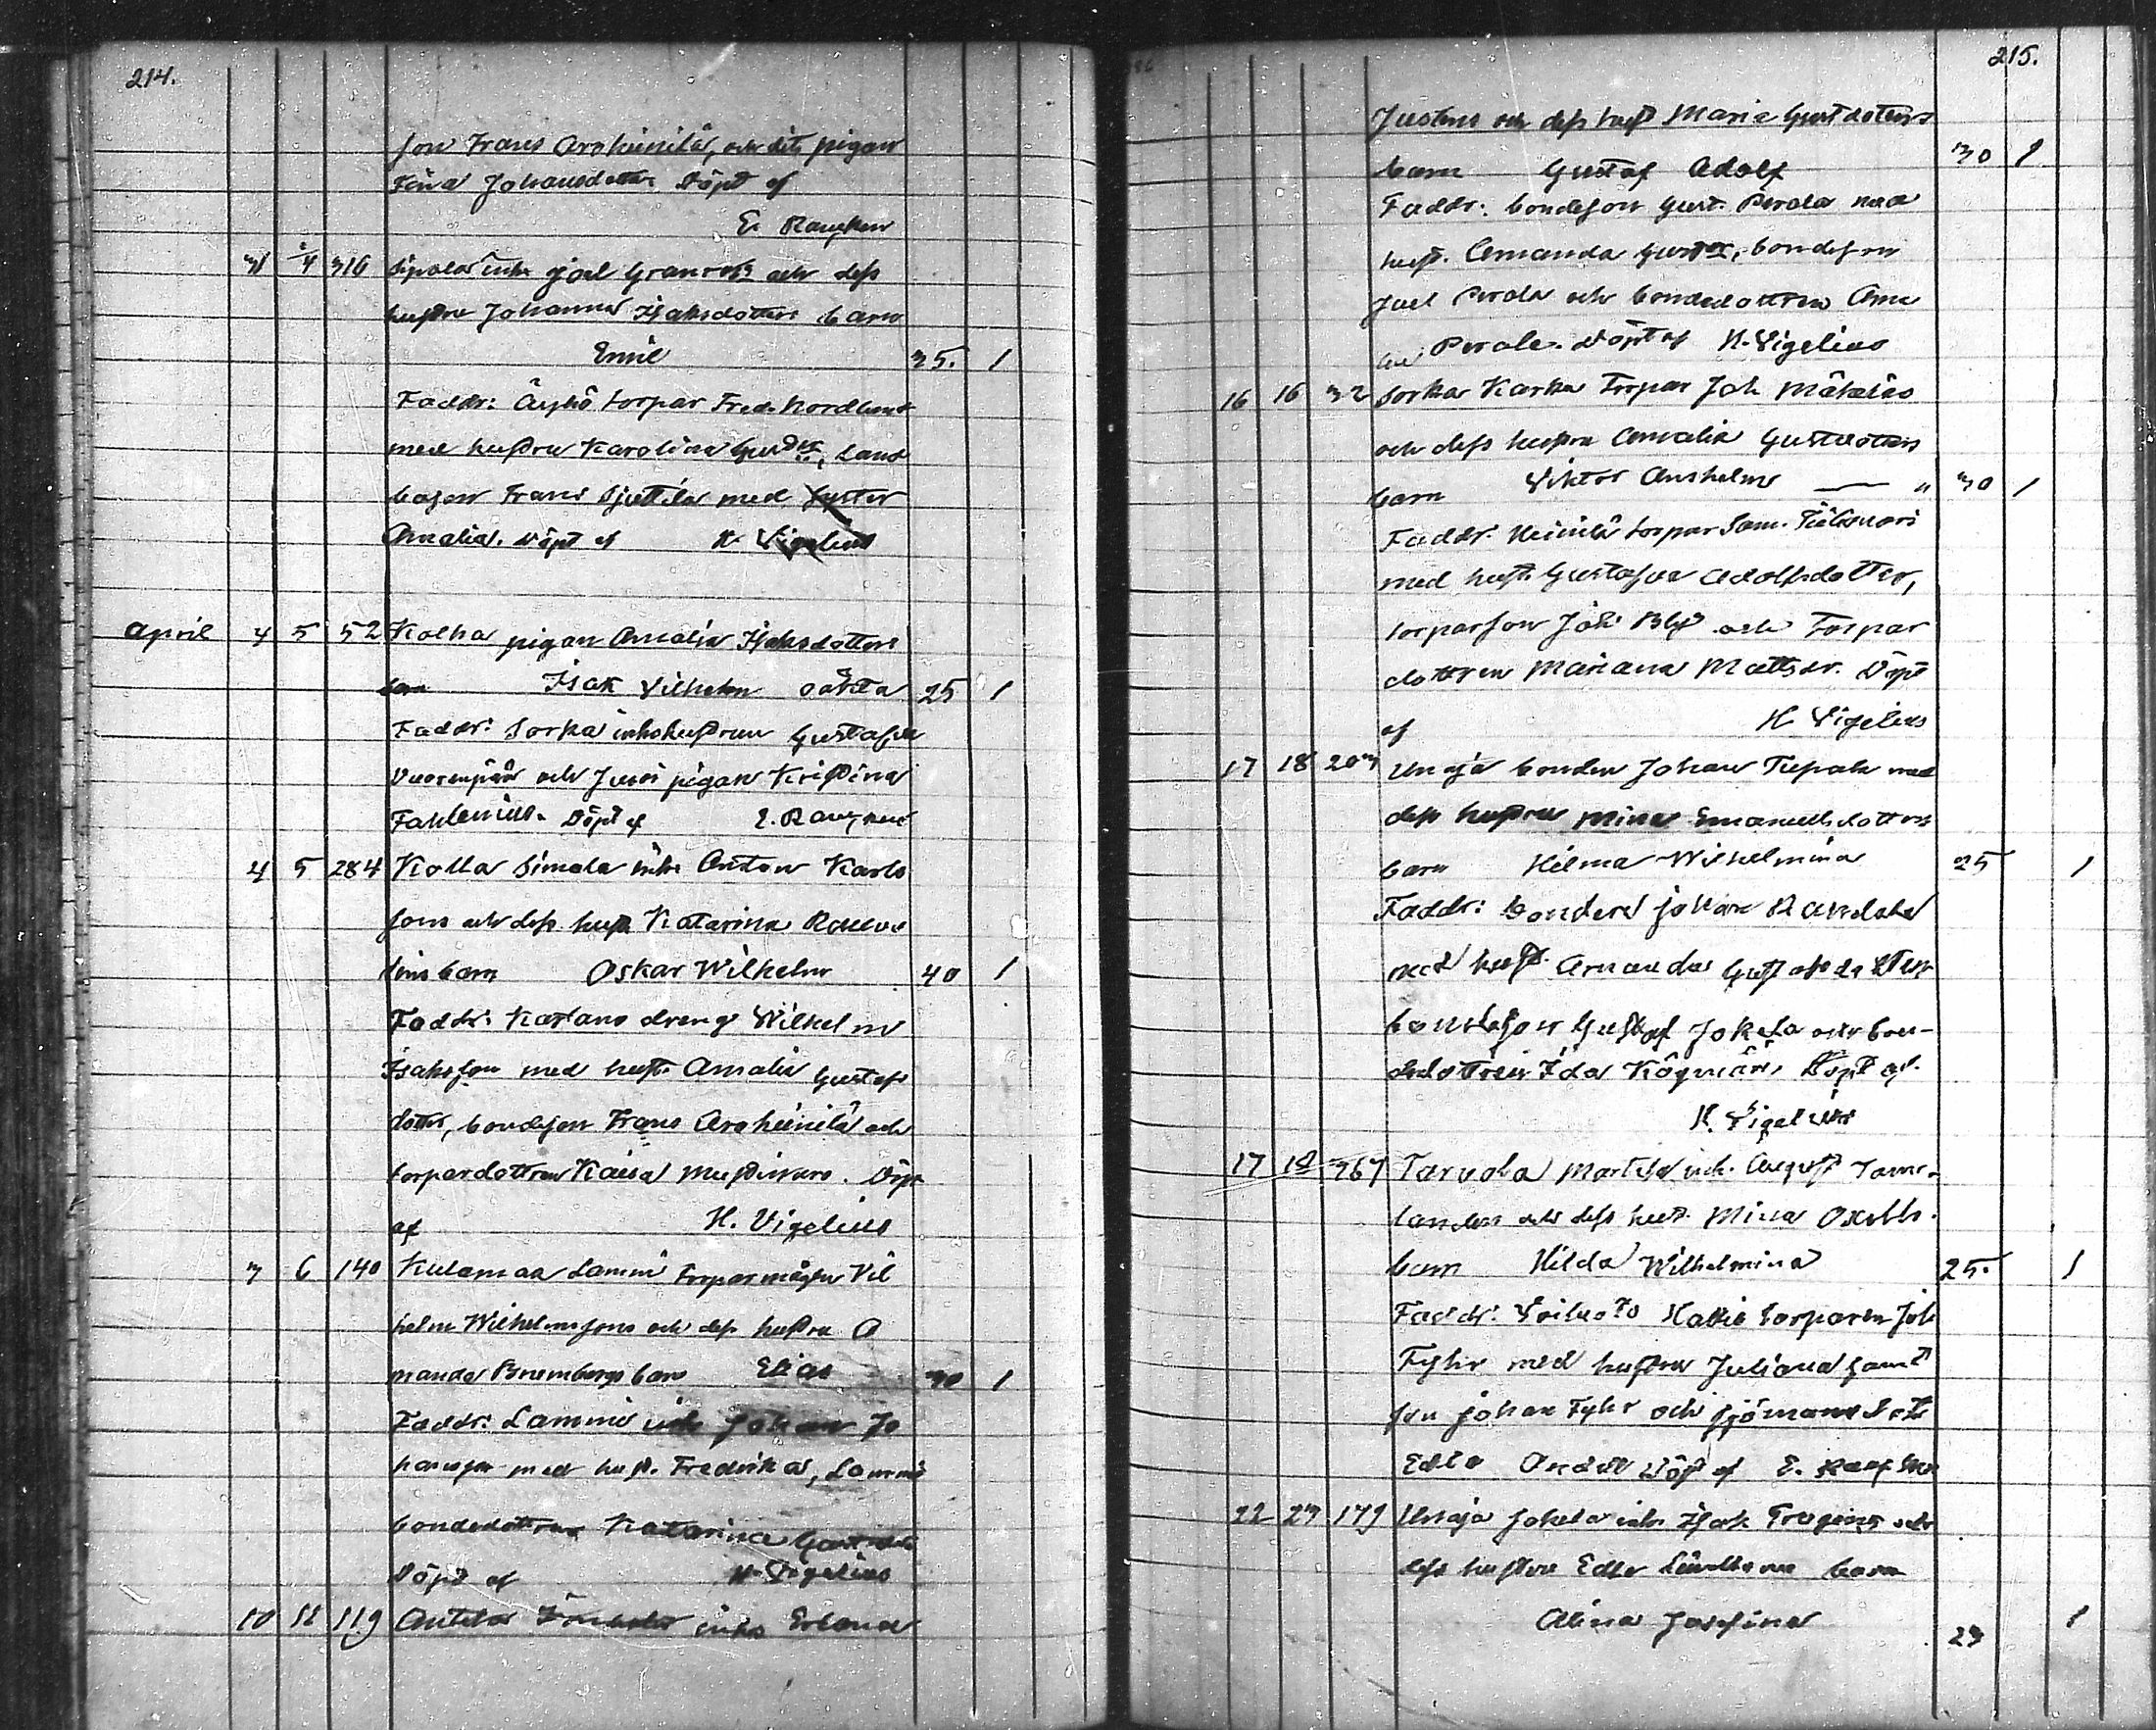 214.
son Frans Aroheinilä, och dito pigan
Fina Johansdotter Döpt af
E. Rancken
31 2/4 316 Sipola inhs Joel Granrots och dess
hustru Johanna Isaksdotters barn
Emil 35. 1
Faddr: Äyhö torpar Fred. Nordlund
med hustru Karolina Gustdr, Land
bogson Frans Sjuttila med syster
Amalia. Döpt af H. Vigelius
April 4 5 52 Kolha pigan Amalia Isaksdotters
barn Isak Vilhelm oäkta 25 1
Faddr: Sorka inhshustrun Gustafva
Vuorenpää och Jussi pigan Kristina
Döpt af E. Rancken
4 5 284 Kolla Simola inhs Anton Karls
sons och dess hust Katarina
lins barn Oskar Wilhelm 40 1
Faddr: Kartano dreng Wilhelm
Isaksson med hust. Amalia Gustafs
dotter, bondeson Frans Aroheinilä och
torpardottren Kaisa Mustivuro. Döpt
af H. Vigelius
3 6 140 Kulamaa Lammi Torparmågen Vil
helm Wilhelmssons och dess hustru A
manda Brembergs barn Elias 30 1
Faddr: Lammi inhs Johan Jo
hansson med hust. Fredrika, Lammi
bondedottren Katarina
Döpt af H. Vigelius
10 11 119 Anttila inhs Erland
215.
Justens och dess hust Maria Gustdotters
barn Gustaf Adolf 30 1
Faddr: bondeson Gust. Perala med
hust. Amanda Gustdr, bondeson
Joel Perala och bondedottren Ama
lia Perala. Döpt af H. Vigelius
16 16 32 Sorka Karka Torpar Joh Mäkeläs
och dess hustru Amalia Gustdotters
barn Viktor Anshelm — " 30 1
Faddr. Heinilä torpar Sam.
med hust. Gustafva Adolfsdotter,
torparson Joh. Bly och Torpar
dottren Mariana Mattsdr. Döpt
af H. Vigelius
17 18 203 Unaja bonden Johan med
dess hustru Mina Emanuelsdotters
barn Hilma Wilhelmina 25 1
Faddr: bonden Johan
med hust. Amanda Gustafsdotter
bondeson Gustaf Jokela och bon-
dedottren Ida Döpt af
H. Vigelius
17 18 367 Tarvola Martila inh. August
och dess hust. Mina
barn Hilda Wilhelmina 25. 1
Faddr: torparen Joh
Fyhr med hustru Juliana samt
son Johan Fyhr och sjömans
Edla Döpt af E. Rancken
22 23 179 Unaja Jokela inhs Isak och
dess hustru Edla barn
Alina Josefina 23 1